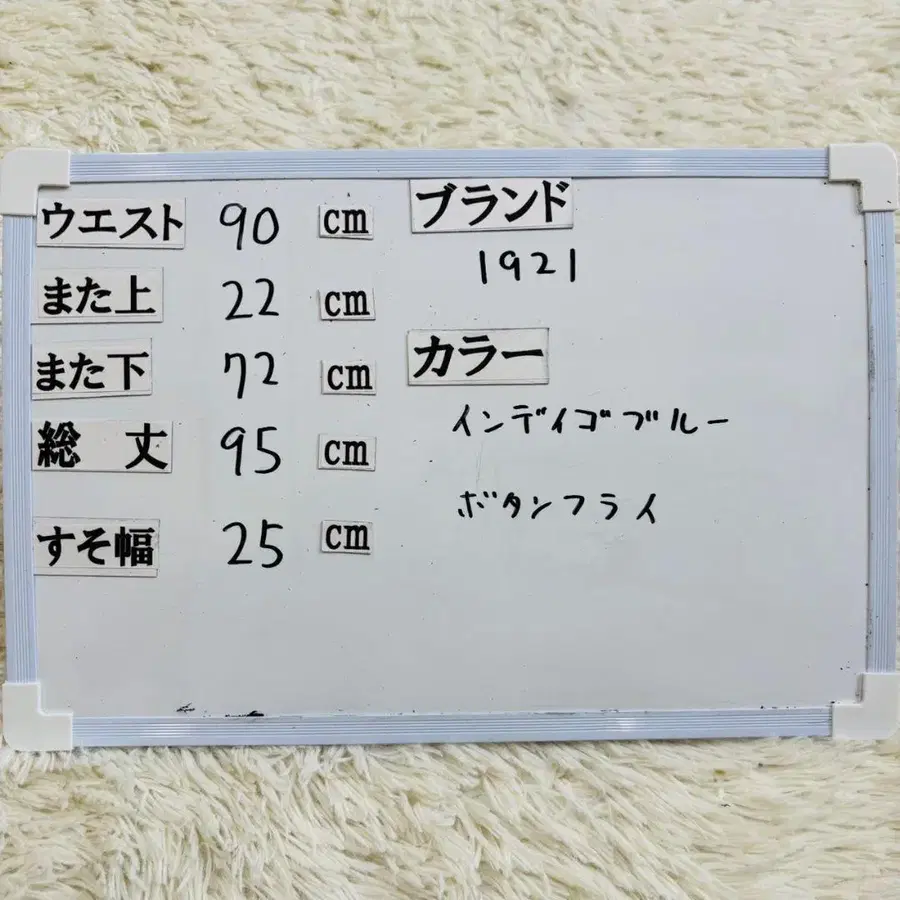 ウエスト 90 cm
また上 22 cm
また下 72 cm
総 丈 95 cm
すそ幅 25 cm
ブランド
1921
カラー
インディゴブルー
ボタンフライ